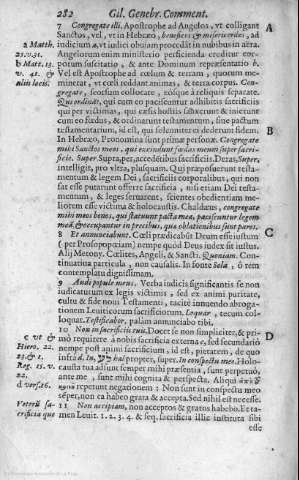 282 Gil. Genebr. Comment.
7 Congregate illi. Apostrophe ad Angelos, vt colligant A
Sanctos, vel, vt in Hebræo, beneficos & misericordes, ad
a Matth. indicium a, vt iusti obuiam procedãt in nubibus in aëra.
25.v.31. Angelorum enim ministerio perficienda creditur cor-
b Marc. 13. porum suscitatio, & ante Dominum repræsentatio b.
v. 41. & Vel est Apostrophe ad cœlum & terram, quorum me-
aliis locis. minerat, vt cœli reddant animas, & terra corpus. Con-
gregate, seorsum collocate, eosque à reliquis separate.
Qui ordinãt, qui cum eo paciscuntur adhibitis sacrificiis
qui per victimas, qui cæsis hostiis fœdus feriunt & ineunt
cum eo fœdus, & ordinant testamentum, siue pactum
testamentarium, id est, qui solenniter ei dederunt fidem. B
In Hebræo, Pronomina sunt primæ personæ. Congregate
mihi Sanctos meos, qui
ficio. Super. Supra, per, accedētibus sacrificiis. Dezas, Super,
intelligit, pro vltra, plusquam. Qui præposuerunt testa-
mentum & legem Dei, sacrificiis corporalibus, qui non
sat esse putarunt offerre sacrificia, nisi etiam Dei testa-
mentum, & leges seruarent, scientes obedientiam me-
liorem esse victima & holocaustis. Chaldæus, congregate
mihi meos bonos, qui statuunt pacta mea, paciscuntur legem
meã, & occupantur in precibus, quæ oblationibus sunt pares.
8 Et annunciabunt. Cœli prædicabũt Deum esse iustum C
( per Prosopopœiam) nempe quòd Deus iudex sit iustus.
Alij Metony. Cœlites, Angeli, & Sancti. Quoniam. Con-
tinuatiua particula, non causalis. In fonte Sela, ô rem
contemplatu dignissimam.
9 Audi popule meus. Verba iudicis significantis se non
iudicaturum ex legis victimis, sed ex animi puritate,
cultu & fide noui Testamenti, tacitè innuendo abroga-
tionem Leuiticorum sacrificiorum. Loquar, tecum col-
loquar. Testificabor, palàm annunciabo tibi.
10 Non in sacrificiis tuis. Docet se non simpliciter, & pri- D
c vt & mò requirere à nobis sacrificia externa c, sed secundariò
Hiero. 22. nempe post animi sacrificium, id est, pietatem, de quo
23. & 1. infrà d. In, propter, super. In conspectu meo. Holo-
Reg. 15. v. causta tua adsunt semper mihi præsentia, sunt perpetuò
22. ante me, sunt mihi cognita & perspecta. Aliqui
d vers. 16. repetunt negationem: Non sunt in conspectu meo
semper, non ea habeo grata & accepta. Sed nihil est necesse.
Veteris sa- 11 Non accipiam, non acceptos & gratos habebo. Et ta-
crificia quæ men Leuit. 1. 2. 3. 4. & seq. sacrificia illi institut sibi
esse